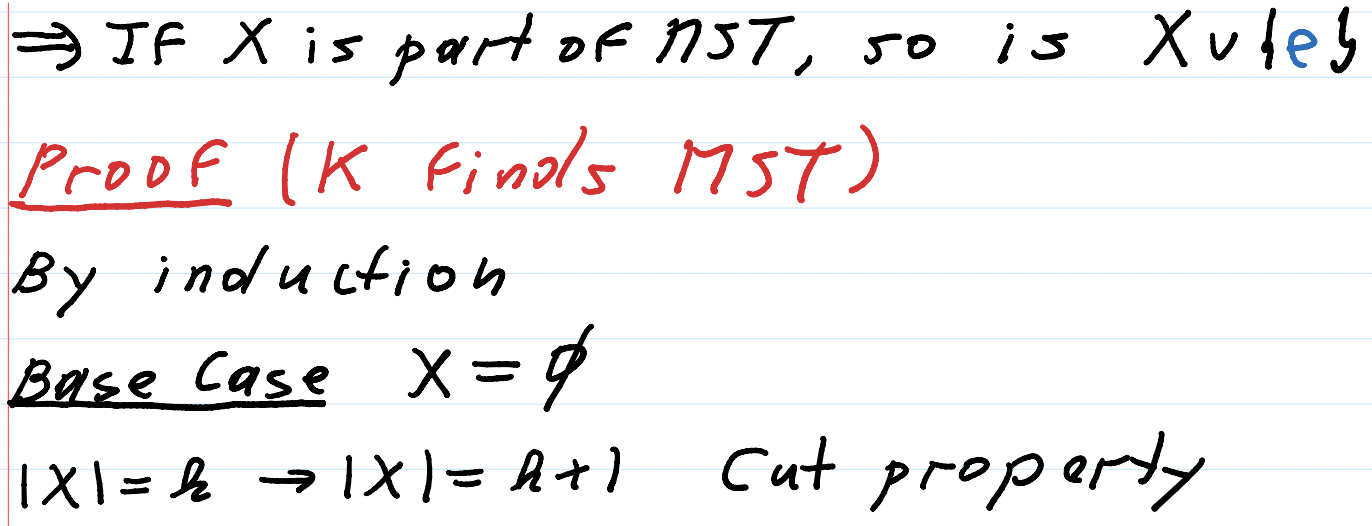 ⇒ If X is part of MST, so is X∪{e}
Proof (K finds MST)
By induction
Base Case X = ∅
|X| = k → |X| = k+1 Cut property